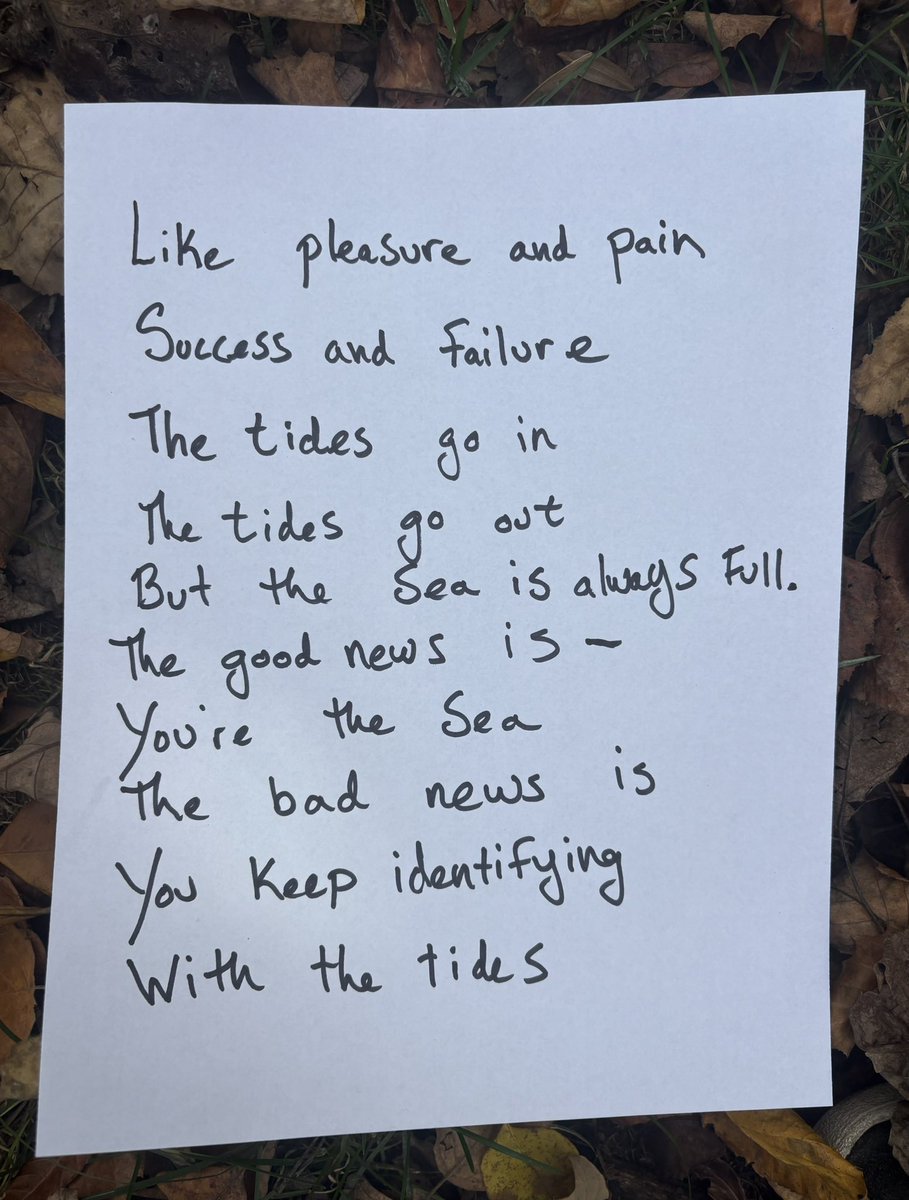 Like pleasure and pain
Success and failure
The tides go in
The tides go out
But the Sea is always Full.
The good news is –
You're the Sea
The bad news is
You Keep identifying
With the tides